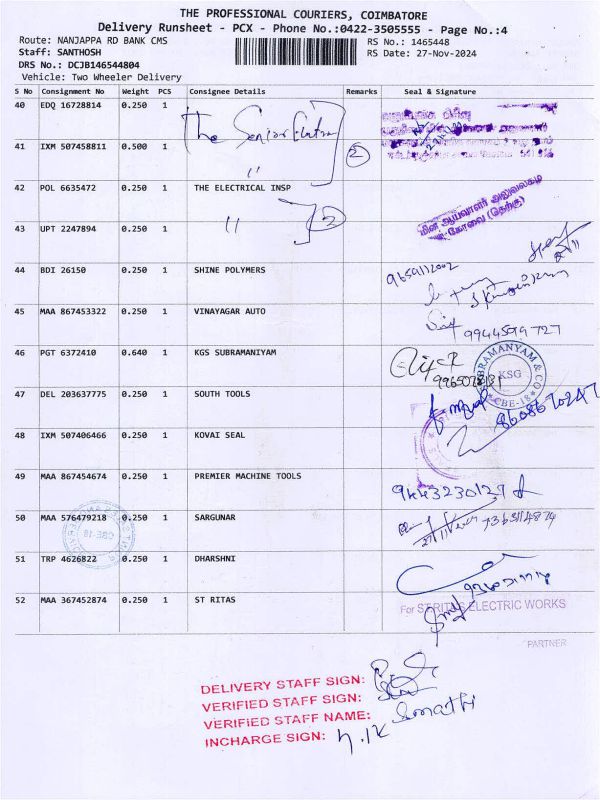 THE PROFESSIONAL COURIERS, COIMBATORE
Delivery Runsheet - PCX - Phone No.:0422-3505555 - Page No.:4
Route: NANJAPPA RD BANK CMS RS No.: 1465448
Staff: SANTHOSH RS Date: 27-Nov-2024
DRS No.: DCJB146544804
Vehicle: Two Wheeler Delivery
S No Consignment No Weight PCS Consignee Details Remarks Seal & Signature
40 EDQ 16728814 0.250 1 The Senior
41 IXM 507458811 0.500 1 " 2
42 POL 6635472 0.250 1 THE ELECTRICAL INSP
மின் ஆய்வாளர் அலுவலகம்
கோவை (தெற்கு)
43 UPT 2247894 0.250 1 " 2
44 BDI 26150 0.250 1 SHINE POLYMERS 9659112002
45 MAA 867453322 0.250 1 VINAYAGAR AUTO 9944599727
46 PGT 6372410 0.640 1 KGS SUBRAMANIYAM
SUBRAMANYAM & CO KSG CBE-18
47 DEL 203637775 0.250 1 SOUTH TOOLS 8608670247
48 IXM 507406466 0.250 1 KOVAI SEAL
49 MAA 867454674 0.250 1 PREMIER MACHINE TOOLS 9443230127
50 MAA 576479218 0.250 1 SARGUNAR
CBE-18
51 TRP 4626822 0.250 1 DHARSHNI
52 MAA 367452874 0.250 1 ST RITAS
For ST.RITAS ELECTRIC WORKS
PARTNER
DELIVERY STAFF SIGN:
VERIFIED STAFF SIGN:
VERIFIED STAFF NAME: Smathi
INCHARGE SIGN: